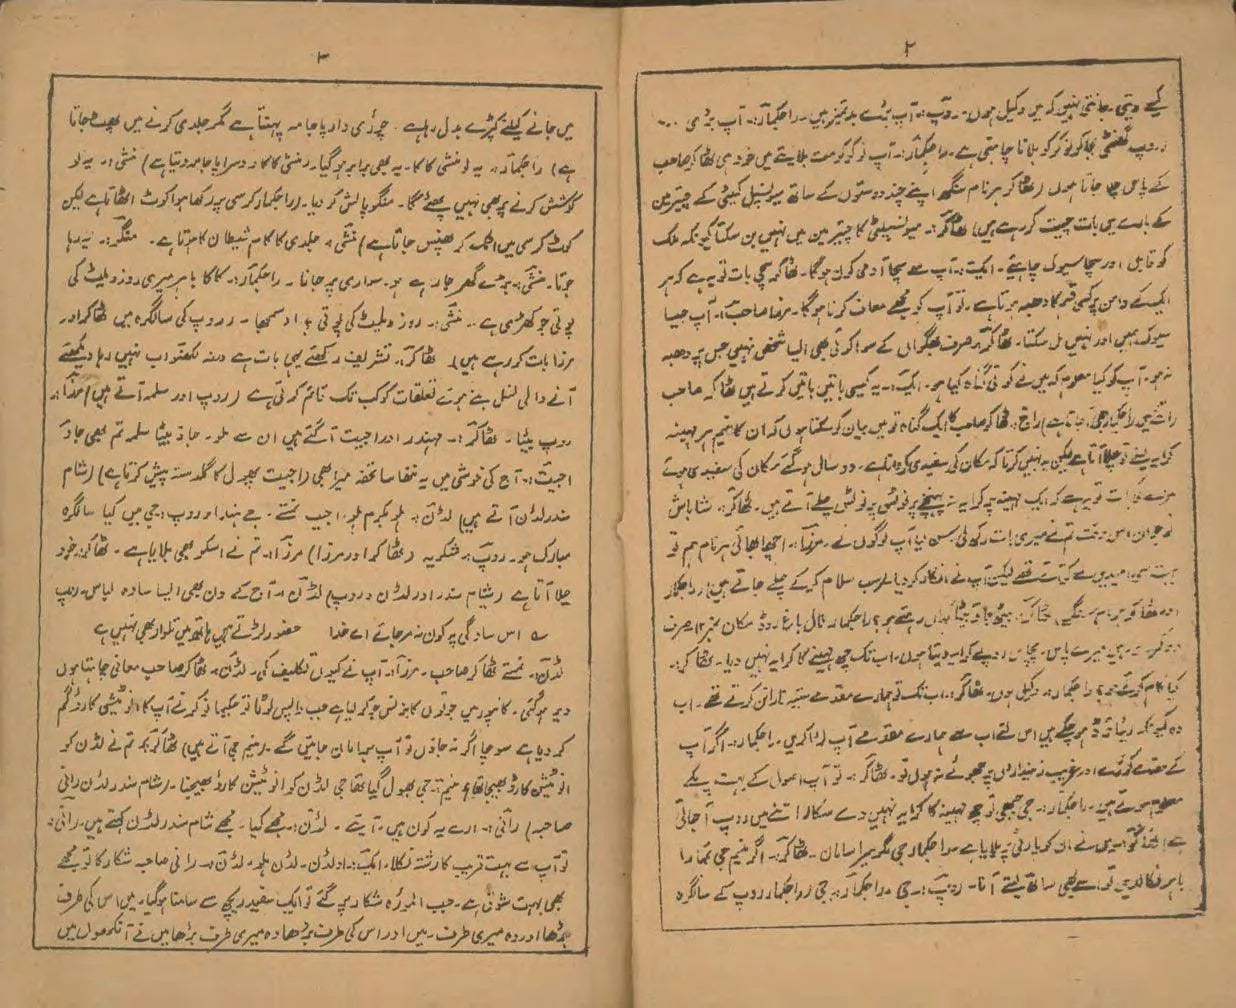 ۲
کے دیتی۔ جانتی نہیں کہ میں وکیل ہوں۔ روپ:۔ آپ بڑے بدتمیز ہیں۔ راجکمار:۔ آپ بڑی ....
روپ گھنٹی بجا کر نوکر کو بلانا چاہتی ہے۔ راجکمار:۔ آپ نوکر کو مت بلایئے میں خود ہی ٹھاکر صاحب
کے پاس چلا جاتا ہوں (ٹھاکر ہرنام سنگھ اپنے چند دوستوں کے ساتھ میونسپل کمیٹی کے چیئرمین
کے بارے میں بات چیت کر رہے ہیں) ٹھاکر:۔ میونسپلٹی کا چیئرمین میں نہیں بن سکتا کیونکہ ملک
کو قابل اور سچا سیوک چاہیئے۔ ایک:۔ آپ سے سچا آدمی کون ہوگا۔ ٹھاکر سچی بات تو یہ ہے کہ ہر
ایک کے دامن پر کسی قسم کا دھبہ ہوتا ہے۔ تو آپ کو مجھے معاف کرنا ہوگا۔ مرزا صاحب:۔ آپ جیسا
سیوک ہمیں اور نہیں مل سکتا۔ ٹھاکر:۔ صرف بھگوان کے سوا کوئی بھی ایسا شخص نہیں جس پر دھبہ
نہ ہو۔ آپ کو کیا معلوم کہ میں نے کوئی گناہ کیا ہو۔ ایک:۔ یہ کیسی باتیں باتیں کرتے ہیں ٹھاکر صاحب
راج:۔ ٹھاکر صاحب کا ایک گناہ تو میں بیان کر سکتا ہوں کہ ان کا منیم ہر مہینہ
کرایہ لینے تو چلا آتا ہے لیکن یہ نہیں کرتا کہ مکان کی سفیدی کروا دے۔ دو سال ہو گئے مکان کی سفیدی ہوئے
مزے کی بات تو یہ ہے کہ ایک مہینہ کرایہ نہ پہنچے پر نوٹس پر نوٹس چلے آتے ہیں۔ ٹھاکر:۔ شاباش
نوجوان اس وقت تم نے میری بات رکھ لی سن لیا آپ لوگوں نے۔ مرزا:۔ اچھا بھائی ہرنام ہم تو
بہت سی امیدیں لے کر آئے تھے لیکن آپ نے انکار کر دیا (سب سلام کر کے چلے جاتے ہیں) راجکمار
بیٹا کہاں رہتے ہو؟ راجکمار: مال باغ روڈ مکان نمبر ۱۲ صرف
دو کمرے ہیں میرے پاس۔ پچاس روپے کرایہ دیتا ہوں۔ اب تک چھ مہینے کا کرایہ نہیں دیا۔ ٹھاکر:۔
کیا کام کرتے ہو؟ راجکمار:۔ وکیل ہوں۔ ٹھاکر:۔ اب تک تو ہمارے مقدمے ستیہ نارائن کرتے تھے۔ اب
وہ کیونکہ ریٹائرڈ ہو چکے ہیں اس لئے اب سے ہمارے مقدمے آپ لڑا کریں۔ راجکمار:۔ اگر آپ
کے مقدمے کورٹ اور غریب زمینداروں پر جھوٹے نہ ہوں تو۔ ٹھاکر:۔ تو آپ اصول کے بہت پکے
معلوم ہوتے ہیں۔ راجکمار:۔ جی جبھی تو چھ مہینہ کا کرایہ نہیں دے سکا (اتنے میں روپ آ جاتی
ہے) ٹھاکر:۔ میں نے ان کو پارٹی پر بلایا ہے۔ راجکمار:۔ جی مگر میرا سامان۔ ٹھاکر:۔ اگر منیم جی تمہارا
باہر نکالدیں تو اسے بھی ساتھ لیتے آنا۔ روپ:۔ جی۔ راجکمار:۔ جی (راجکمار روپ کے سالگرہ
۳
میں جانے کیلئے کپڑے بدل رہا ہے۔ چوڑی دار پاجامہ پہنتا ہے مگر جلدی کرنے میں پھٹ جاتا
ہے) راجکمار:۔ یہ لو منشی کاکا۔ یہ بھی برابر ہو گیا۔ (منشی کاکا دوسرا پاجامہ دیتا ہے) منشی:۔ یہ لو
کوشش کرنے پر بھی نہیں پھٹے گا۔ منگو پالش کر دیا۔ (راجکمار کرسی پر رکھا ہوا کوٹ اٹھاتا ہے لیکن
کوٹ کرسی میں اٹک کر پھنس جاتا ہے) منشی:۔ جلدی کا کام شیطان کا ہوتا ہے۔ منگو:۔ یہ رہا
جوتا۔ منشی:۔ بڑے گھر جا رہے ہو۔ سواری پر جانا۔ راجکمار:۔ کاکا باہر میری روز ویلیٹ کی
پوتی جو کھڑی ہے۔ منشی:۔ روز ویلیٹ کی پوتی؟ او سمجھا۔ (روپ کی سالگرہ میں ٹھاکر اور
مرزا بات کر رہے ہیں) ٹھاکر:۔ تشریف رکھئے یہی بات ہے ورنہ لکھنؤ اب نہیں رہا دیکھئے
آنے والی نسل بنے ہوئے تعلقات کو کب تک قائم کرتی ہے (روپ اور سلمہ آتے ہیں) مرزا:۔
روپ بیٹا۔ ٹھاکر:۔ مہندر اور اجیت آگئے ہیں ان سے ملو۔ جاؤ بیٹا سلمہ تم بھی جاؤ
اجیت:۔ آج کی خوشی میں یہ ننھا سا تحفہ میرا بھی (اجیت پھول کا گلدستہ پیش کرتا ہے) (شام
سندر لڈن آتے ہیں) لڈن:۔ ہلو بکرم ہلو۔ اجیت نمستے۔ جے ہند اور روپ:۔ جی میں کیا سالگرہ
مبارک ہو۔ روپ:۔ شکریہ (ٹھاکر اور مرزا) مرزا:۔ تم نے اسکو بھی بلایا ہے۔ ٹھاکر:۔ خود
چلا آتا ہے (شیام سندر اور لڈن و روپ) لڈن:۔ آج کے دن بھی ایسا سادہ لباس۔ روپ
؎ اس سادگی پہ کون نہ مر جائے اے خدا حضور لڑتے ہیں ہاتھ میں تلوار بھی نہیں ہے
لڈن:۔ نمستے ٹھاکر صاحب۔ مرزا:۔ آپ نے کیوں تکلیف کی۔ لڈن:۔ ٹھاکر صاحب معافی چاہتا ہوں
دیر ہو گئی۔ کانپور میں جوتوں کا بزنس جو کر لیا ہے جب واپس لوٹا تو حکیما نوکر نے آپ کا انویٹیشن کارڈ گم
کر دیا ہے سوچا اگر نہ جاؤں تو آپ برا مان جائیں گے۔ (منیم جی آتے ہیں) ٹھاکر:۔ تم نے لڈن کو
انویٹیشن کارڈ بھیجا تھا؟ منیم:۔ جی بھول گیا تھا جی لڈن کو انویٹیشن کارڈ بھیجنا۔ (شام سندر لڈن رانی
صاحبہ) رانی:۔ ارے یہ کون ہیں۔ آیئے۔ لڈن:۔ مجھے کیا۔ مجھے شام سندر لڈن کہتے ہیں۔ رانی:۔
تو آپ سے بہت قریب کا رشتہ نکلا۔ ایک:۔ او لڈن۔ لڈن ہلو۔ لڈن:۔ رانی صاحبہ شکار کا تو مجھے
بھی بہت شوق ہے۔ جب الموڑہ شکار پر گئے تو ایک سفید ریچھ سے سامنا ہو گیا۔ میں اس کی طرف
بڑھا اور وہ میری طرف۔ میں اور اس کی طرف بڑھا وہ میری طرف بڑھا میں نے آنکھوں میں